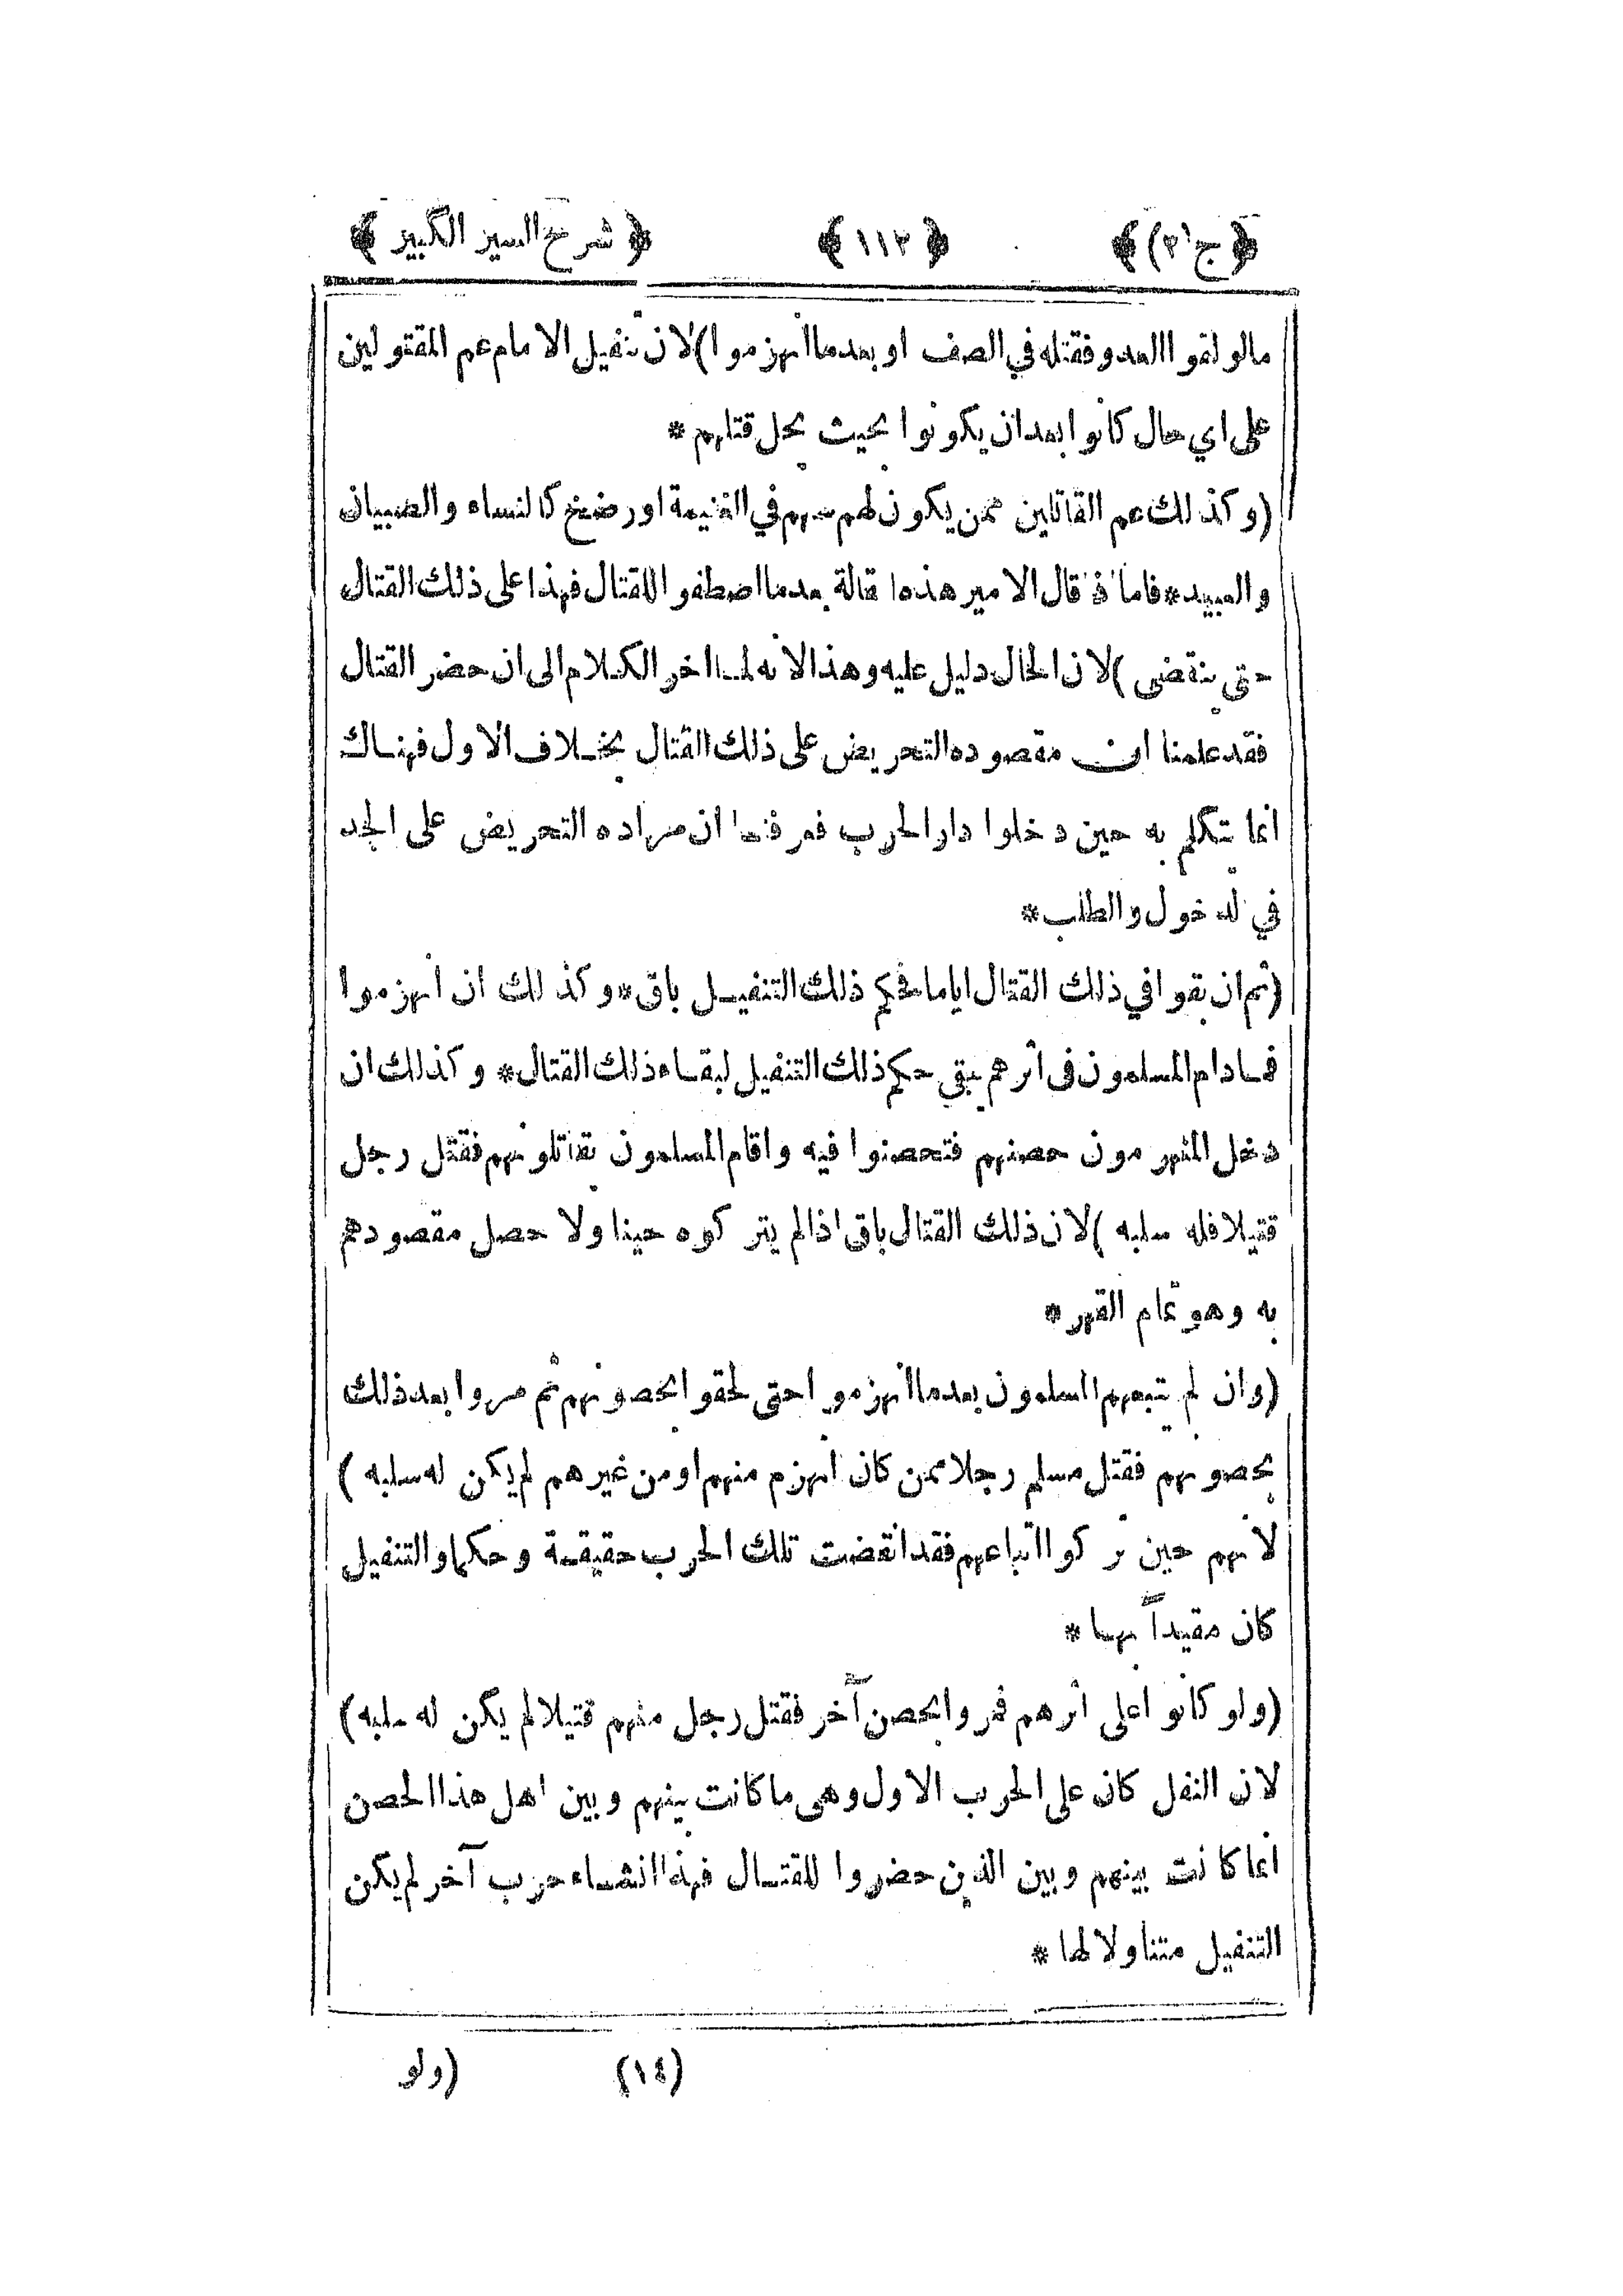 ﴿ ج (٢) ﴾ ﴿ ١١٢ ﴾ ﴿ شرح السير الكبير ﴾
مالو لقوا العدو فقتله في الصف او بعدما انهزموا) لان تنفيل الامام عم المقتولين
على اي حال كانوا بعد ان يكونوا بحيث يحل قتلهم *
(وكذلك عم القاتلين ممن يكون لهم سهم في الغنيمة او رضخ كالنساء والصبيان
والعبيد * فاما اذا قال الامير هذه المقالة بعدما اصطفوا للقتال فهذا على ذلك القتال
حتى ينقضى) لان الحال دليل عليه وهذا لانه لما اخر الكلام الى ان حضر القتال
فقد علمنا ان مقصوده التحريض على ذلك القتال بخلاف الاول فهناك
انما يتكلم به حين دخلوا دار الحرب فعرفنا ان مراده التحريض على الجد
في الدخول والطلب *
(ثم ان بقوا في ذلك القتال اياما فحكم ذلك التنفيل باق * وكذلك ان انهزموا
فما دام المسلمون فى اثرهم يبقى حكم ذلك التنفيل لبقاء ذلك القتال * وكذلك ان
دخل المنهزمون حصنهم فتحصنوا فيه واقام المسلمون يقاتلونهم فقتل رجل
قتيلا فله سلبه) لان ذلك القتال باق اذا لم يتركوه حينا ولا حصل مقصودهم
به وهو تمام القهر *
(وان لم يتبعهم المسلمون بعدما انهزموا حتى لحقوا بحصونهم ثم مروا بعد ذلك
بحصونهم فقتل مسلم رجلا ممن كان انهزم منهم او من غيرهم لم يكن له سلبه)
لانهم حين تركوا اتباعهم فقد انقضت تلك الحرب حقيقة وحكما والتنفيل
كان مقيداً بها *
(ولو كانوا على اثرهم فمروا بحصن آخر فقتل رجل منهم قتيلا لم يكن له سلبه)
لان النفل كان على الحرب الاول وهى ما كانت بينهم وبين اهل هذا الحصن
انما كانت بينهم وبين الذين حضروا للقتال فهذا انشاء حرب آخر لم يكن
التنفيل متناولا لها *
(١٤) (ولو